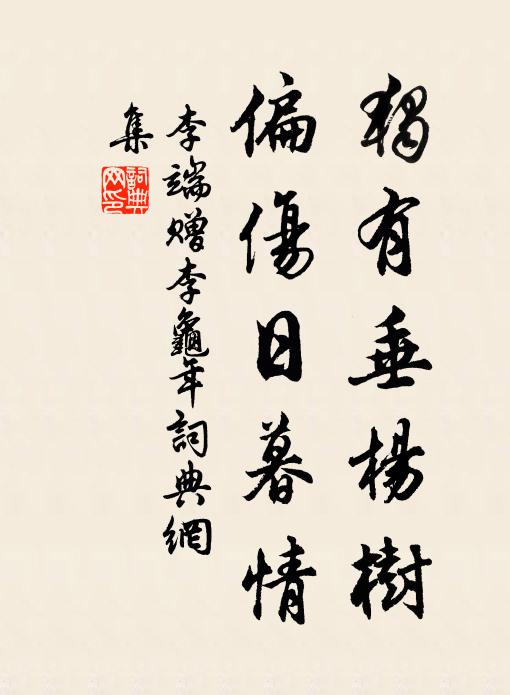 獨有垂楊樹
偏傷日暮情
李端贈李龜年詞典網
集
詞典網印